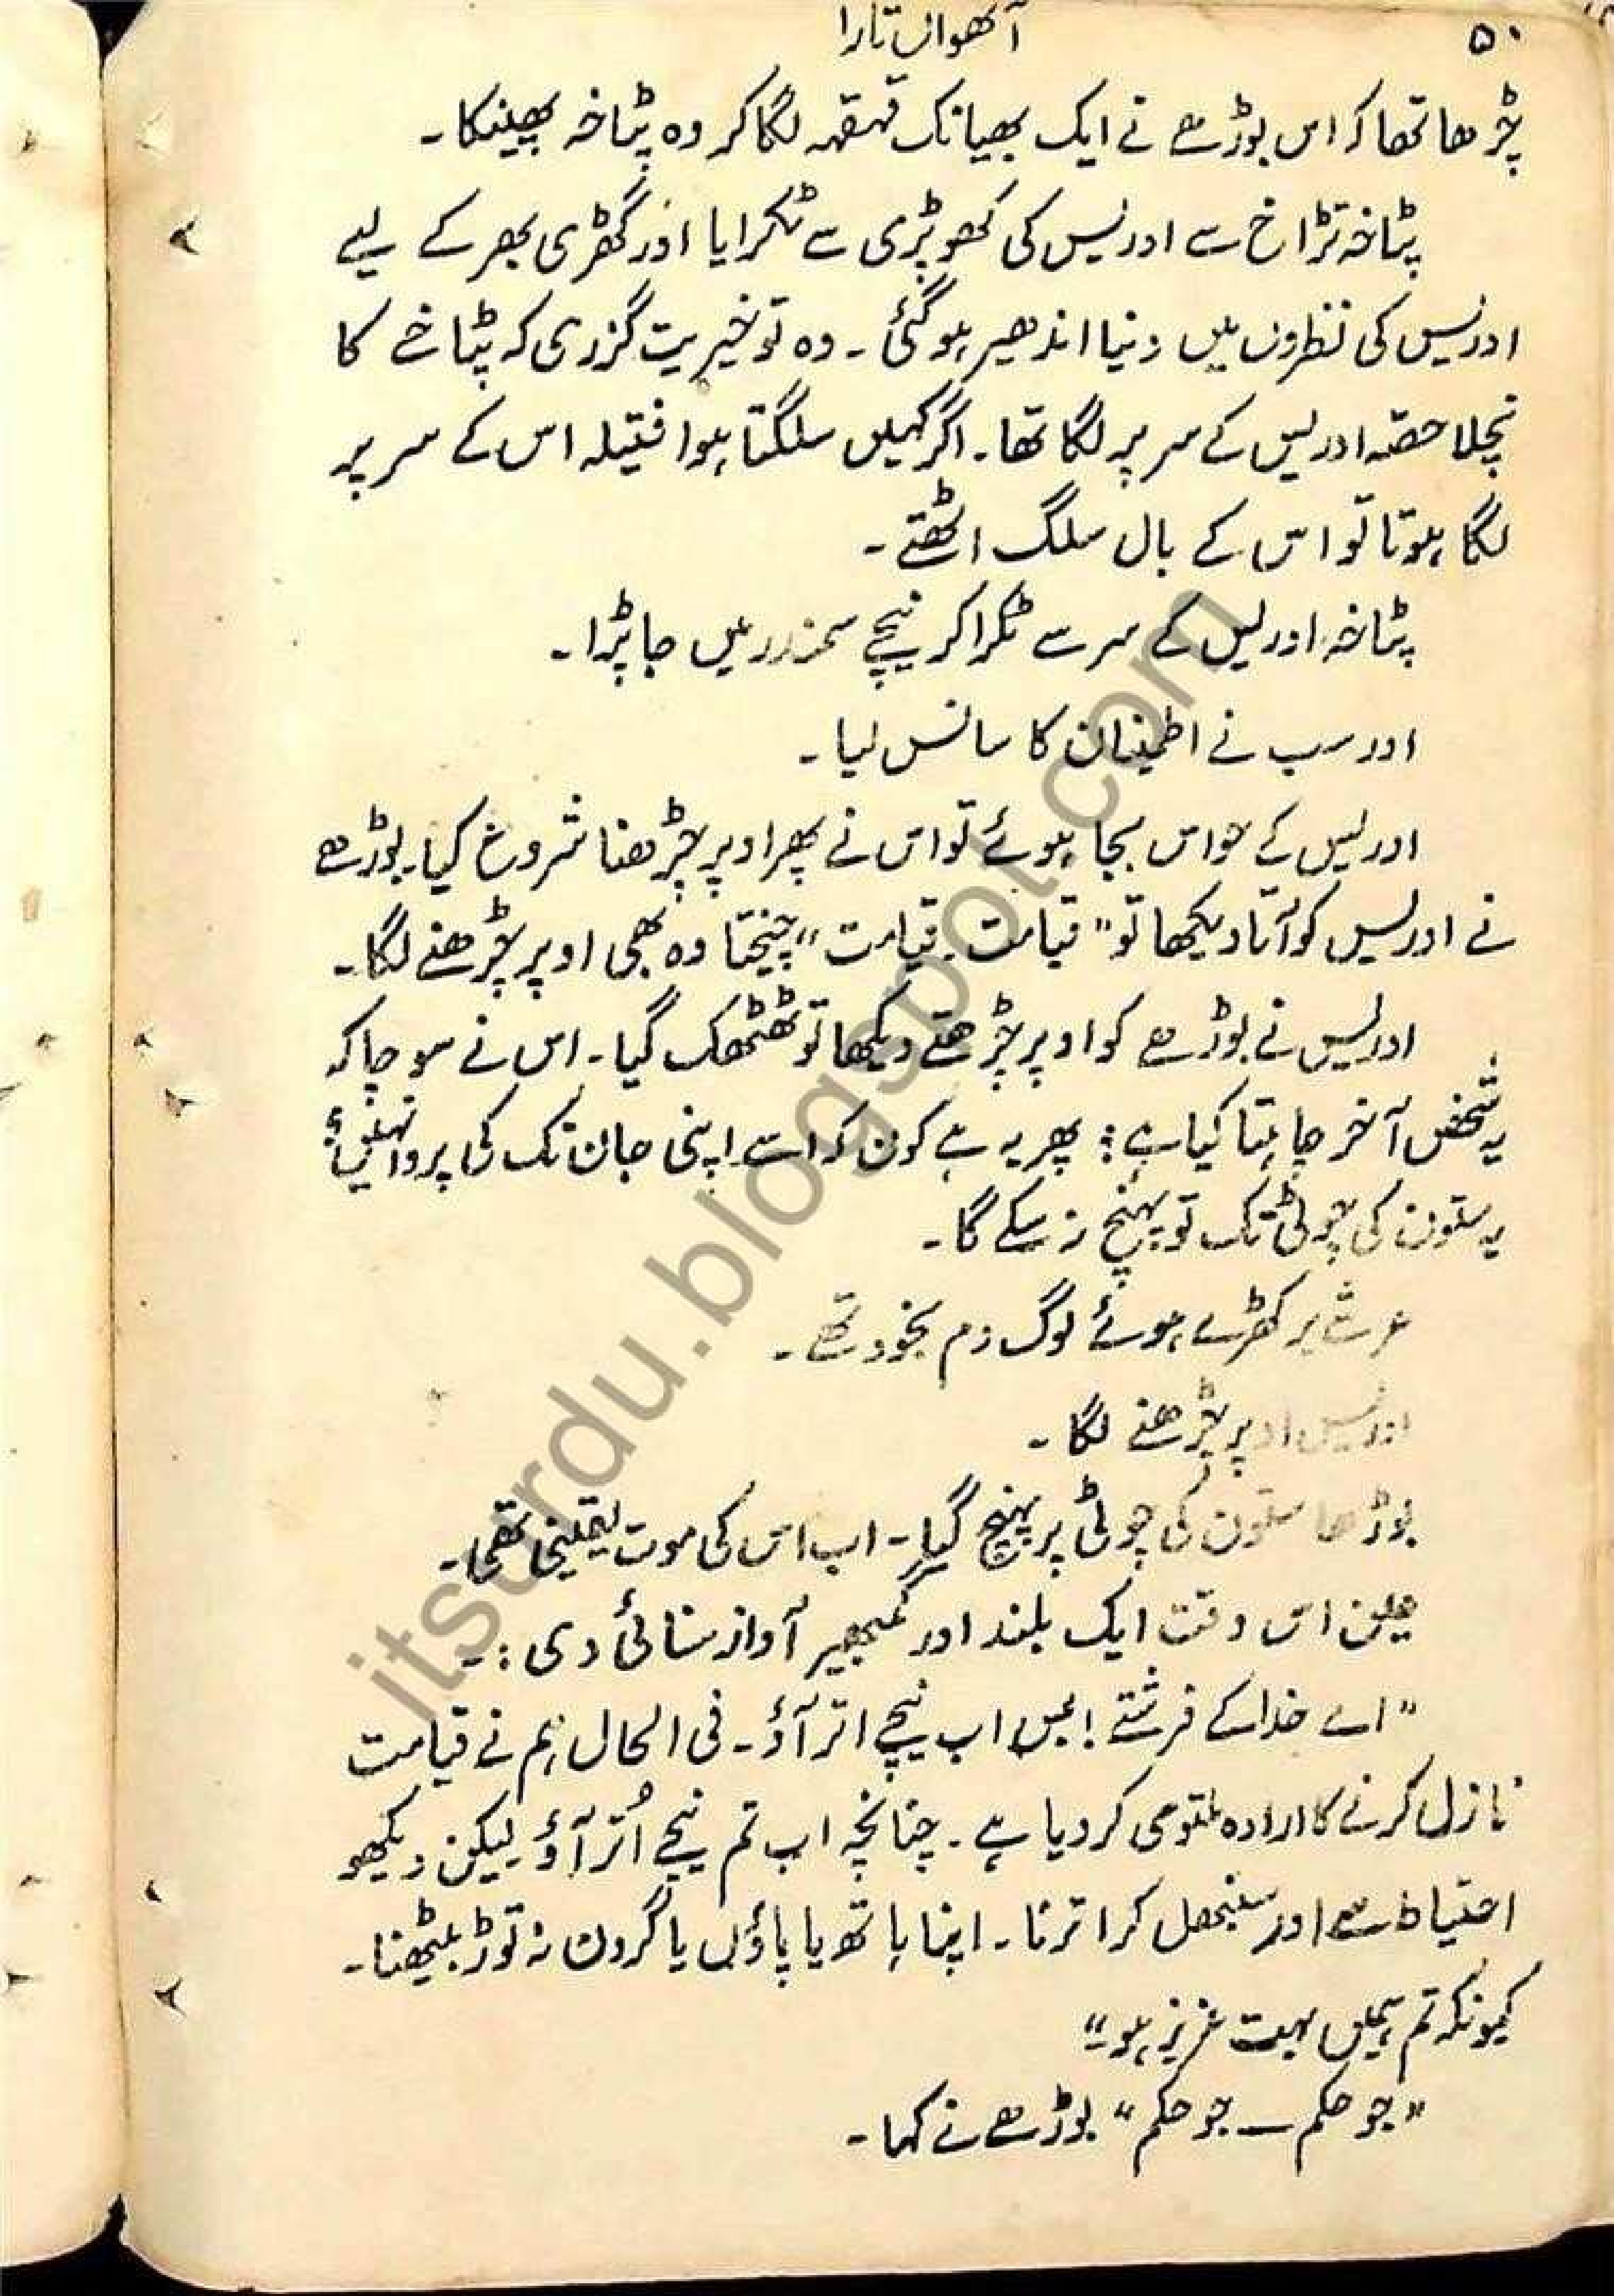 ۵۰
آٹھواں تارا
چڑھا تھا کہ اس بوڑھے نے ایک بھیانک قہقہہ لگا کر وہ پٹاخہ پھینکا۔
پٹاخہ تڑاخ سے ادریس کی کھوپڑی سے ٹکرایا اور گھڑی بھر کے لیے
ادریس کی نظروں میں دنیا اندھیر ہو گئی۔ وہ تو خیریت گزری کہ پٹاخے کا
نچلا حصہ ادریس کے سر پر لگا تھا۔ اگر کہیں سلگتا ہوا فتیلہ اس کے سر پر
لگا ہوتا تو اس کے بال سلگ اٹھتے۔
پٹاخہ ادریس کے سر سے ٹکرا کر نیچے سمندر میں جا پڑا۔
اور سب نے اطمینان کا سانس لیا۔
ادریس کے حواس بجا ہوئے تو اس نے پھر اوپر چڑھنا شروع کیا۔ بوڑھے
نے ادریس کو آتا دیکھا تو "قیامت۔ قیامت" چیختا وہ بھی اوپر چڑھنے لگا۔
ادریس نے بوڑھے کو اوپر چڑھتے دیکھا تو ٹھٹھک گیا۔ اس نے سوچا کہ
یہ شخص آخر چاہتا کیا ہے؟ پھر یہ ہے کون کہ اسے اپنی جان تک کی پروا نہیں؟
یہ ستون کی چوٹی تک تو پہنچ نہ سکے گا۔
عرشے پر کھڑے ہوئے لوگ دم بخود تھے۔
ادریس اوپر چڑھنے لگا۔
بوڑھا ستون کی چوٹی پر پہنچ گیا۔ اب اس کی موت یقینی تھی۔
عین اس وقت ایک بلند اور گمبھیر آواز سنائی دی:۔
"اے خدا کے فرشتے! بس اب نیچے اتر آؤ۔ فی الحال ہم نے قیامت
نازل کرنے کا ارادہ ملتوی کر دیا ہے۔ چنانچہ اب تم نیچے اُتر آؤ لیکن دیکھو
احتیاط سے اور سنبھل کر اترنا۔ اپنا ہاتھ یا پاؤں یا گردن نہ توڑ بیٹھنا۔
کیونکہ تم ہمیں بہت عزیز ہو۔"
"جو حکم۔ جو حکم" بوڑھے نے کہا۔
itsurdu.blogspot.com